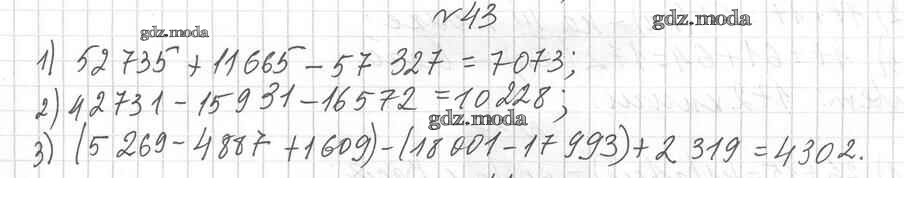 №43
gdz.moda
gdz.moda
1) 52 735 + 11 665 - 57 327 = 7073;
2) 42731 - 15931 - 16572 = 10228;
gdz.moda
3) (5 269 - 4887 + 1609) - (18 001 - 17 993) + 2 319 = 4302.